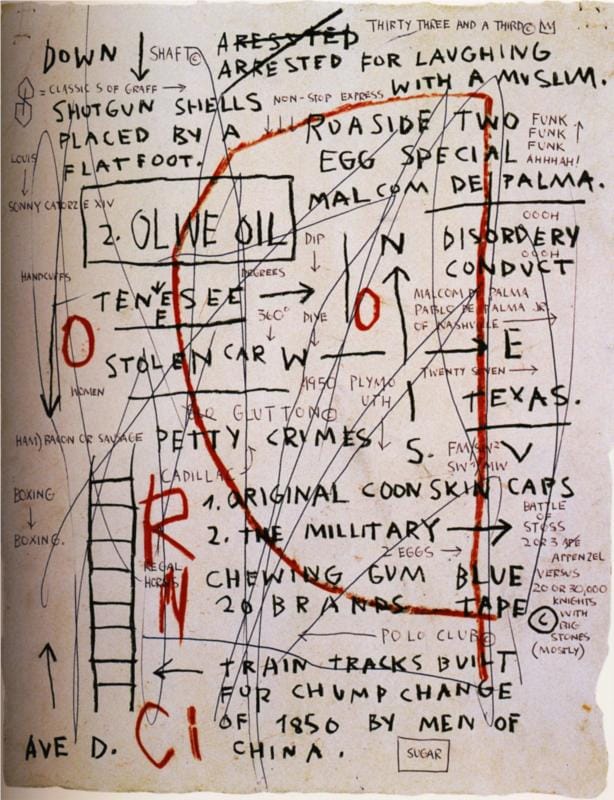 THIRTY THREE AND A THIRD©
DOWN ↓ SHAFT©
ARESSTED
ARRESTED FOR LAUGHING
WITH A MUSLIM.
= CLASSIC S OF GRAFF →
SHOTGUN SHELLS
NON-STOP EXPRESS
PLACED BY A
FLATFOOT.
ROASIDE TWO
EGG SPECIAL
FUNK
FUNK
FUNK
AHHHAH!
LOUIS
SONNY CATORZE XIV
MALCOM DE PALMA.
2. OLIVE OIL
DIP
N
OOOH
DISORDERY
OOOH
CONDUCT
HANDCUFFS
DEGREES
TENESEE →
E
360°
DIVE
O
MALCOM DE PALMA
PABLO DE PALMA JR
OF NASHVILLE
O
STOLEN CAR
W
E
WOMEN
1950 PLYMO
UTH
TWENTY SEVEN →
TEXAS.
GLUTTON©
HAM) BACON OR SAUSAGE
PETTY CRIMES
S.
V
CADILLAC
1. ORIGINAL COON SKIN CAPS
R
2. THE MILLITARY →
2 EGGS →
BOXING
↓
BOXING.
BATTLE
OF
STOSS
2 OR 3
APPENZEL
VERSUS
20 OR 30,000
KNIGHTS
WITH
BIG
STONES
(MOSTLY)
REGAL
HORNS
N
CHEWING GUM BLUE
20 BRANDS TAPE ©
POLO CLUB©
← TRAIN TRACKS BUILT
FOR CHUMP CHANGE
OF 1850 BY MEN OF
CHINA.
Ci
AVE D.
SUGAR